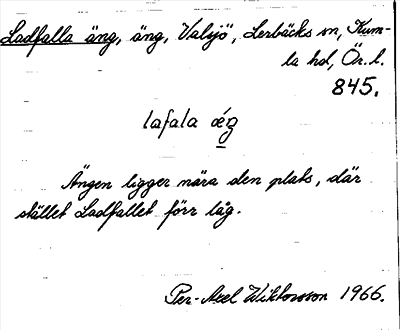 Ladfalla äng, äng, Valsjö, Lerbäcks sn, Kum-
la hd, Ör. l.
845.
lafala ǽŋ
Ängen ligger nära den plats, där
stället Ladfallet förr låg.
Per-Axel Wiktorsson 1966.